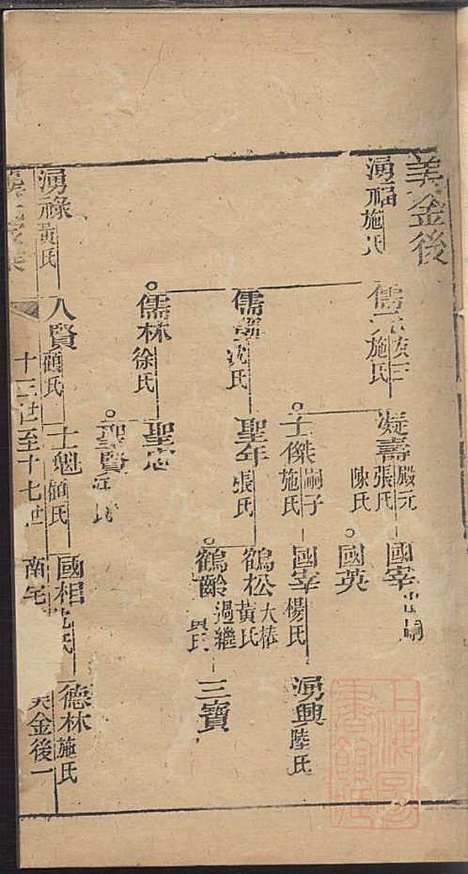 美金後
湧福 施氏
儒 施氏
凝壽 嚴元 張氏 陳氏
國宰 出嗣
國英
士傑 嗣子 施氏
國宰 楊氏
湧興 陸氏
儒 沈氏
聖年 張氏
鶴松 大椿 黃氏
鶴齡 過繼
三寶
儒林 徐氏
聖忠
聖賢
湧祿 黃氏
入賢 顧氏
士魁 顧氏
國相 沈氏
德林 施氏
十三世至十七世
南宅
美金後一